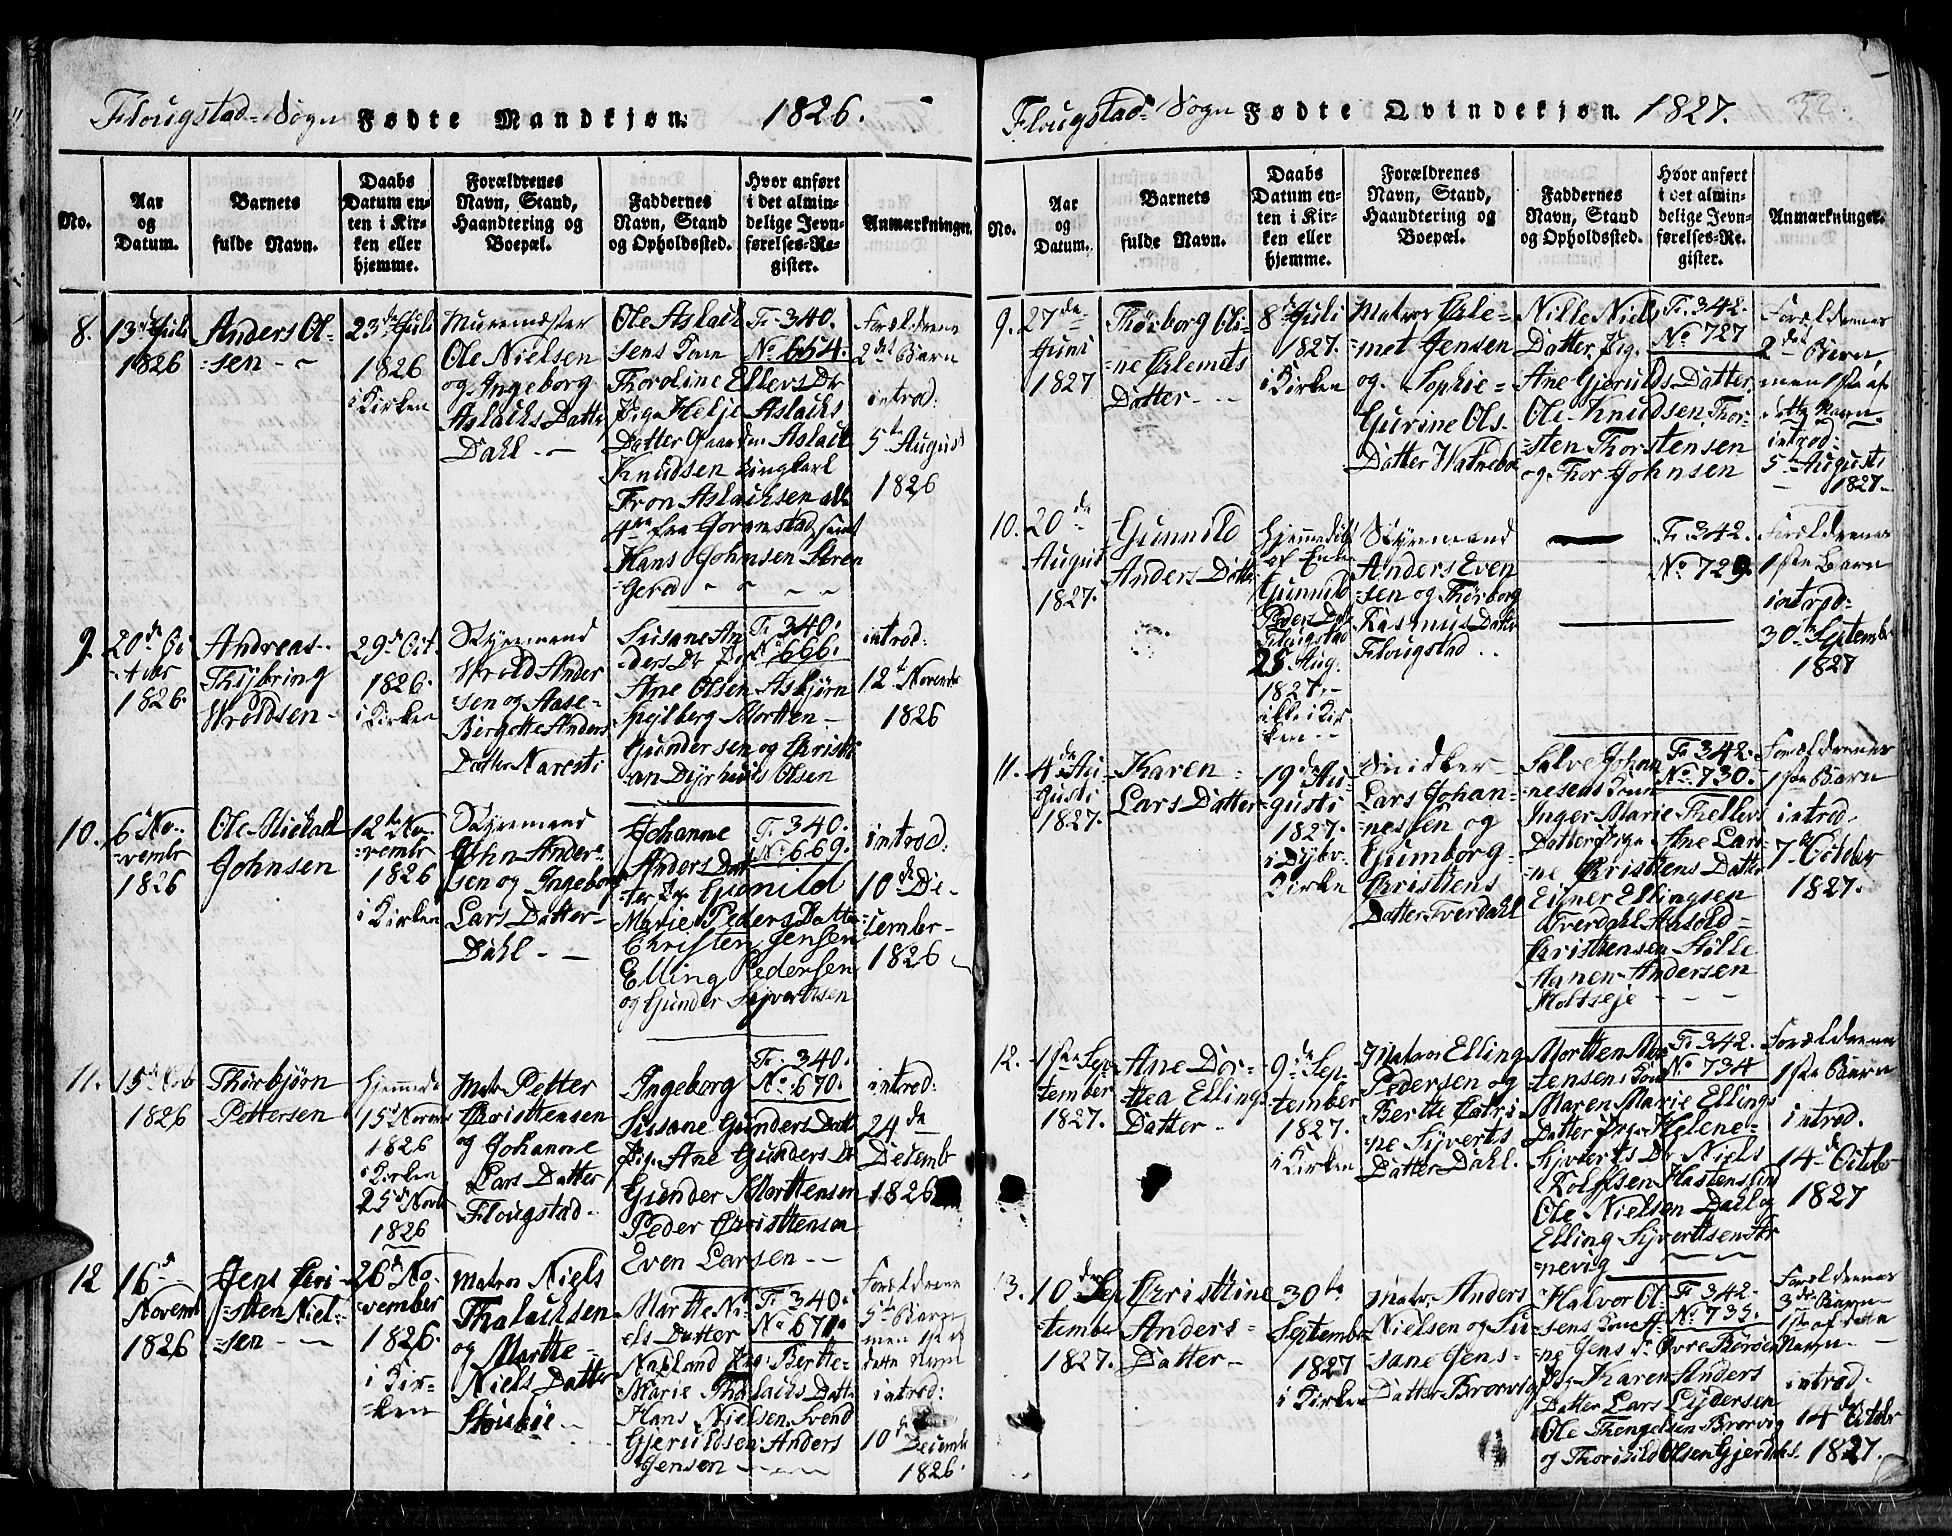 Flougstad Sogn Fødte Mandkjøn. 1826.
No.
Aar og Datum.
Barnets fulde Navn.
Daabs Datum enten i Kirken eller hjemme.
Forældrenes Navn, Stand, Haandtering og Boepæl.
Faddernes Navn, Stand og Opholdssted.
Hvor anført i det almindelige Jevnførelses-Register.
Anmærkninger.
8.
13de Juli
1826
Anders Ol-
=sen
23de Juli
1826
i Kirken
Muurmester
Ole Nielsen
og Ingeborg
Aslachs Datter
Dahl
Ole Aslach
sens Kone
Thoroline Ellevs Dr
Pige Helje Aslachs
Datter Aslach
Knudsen Ungkarl
Tron Aslachsen alle
4re fra samt
Hans Johnsen
Fr 340.
No 654.
Forældrenes
2det Barn
introd:
5te August
1826
9.
20de Oc
-tober
1826.
Andreas
Thijbring
Wroldsen
29de Oct.
1826.
i Kirken
Styrmand
Wrold Ander
sen og Aase
Birgitte Anders
Datter Naresti
Susane An
ders Dr Pige
Ane Olsen Asbjørn
Spejlberg Morten
Gundersen og Christi
an Dyrhuus Olsen
Fr 340.
No 666.
introd:
12te Novembr
1826
10.
6te No-
=vembr
1826
Ole Michael
Johnsen
12te No-
=vembr
1826
i Kirken
Styrmand
John Ander-
sen og Ingeborg
Lars Datter
Dahl
Johanne
Anders Dat
ter Pige Gunild
Marie Peders Datter
Christen Jensen
Elling Pedersen
og Gunder Sijvertsen
Fr. 340.
No 669.
introd:
10de De-
=cembr
1826
11.
15de Nov
1826
Thorbjørn
Pettersen
hjemme
15de Novem
1826
i Kirken
25de Novb
1826
Matr Petter
Christensen
og Johanne
Lars Datter
Flougstad
Ingeborg
Susane Gunders Datt
Pige Ane Gunders Dr
Gunder Morttensen
Peder Christtensen
Even Larsen
Fr. 340.
No. 670.
introd:
24de
Decembr
1826
12
16de
Novemb
1826
Jens Chri-
=sten Niel-
=sen
26de No-
=vember
1826.
i Kir-
=ken
Matros Niels
Thalachsen
og Marthe
Niels Datter
Marthe Ni
els Datter
Napland Pige Berthe
Marie Datter
Hans Nielsen Svend
Gjeruldsen Anders
Jensen
Fr 340.
No 671.
Forældrene
5te Barn
men 1ste af
dette Navn
introd:
10de
Decemb
1826.
Flougstad Sogn Fødte Qvindekjøn. 1827. 32.
No.
Aar og Datum.
Barnets fulde Navn.
Daabs Datum enten i Kirken eller hjemme.
Forældrenes Navn, Stand, Haandtering og Boepæl.
Faddernes Navn, Stand og Opholdssted.
Hvor anført i det almindelige Jevnførelses-Register.
Anmærkninger.
9.
27de
Juni
1827
Thorborg Oli-
=ne Clemets
Datter
8de Juli
1827.
i Kirken
Matros Cle-
=met Jensen
og Sophie
Gurine Ols-
Datter Watnebo
Nille Niels
Datter, Pig.
Ane Gjerulds Datter
Ole Knudsen, Thor-
=sten Thorstensen
og Thor Johnsen
Fr. 342.
No 727
Forældrenes
2det Barn
men 1ste af
dette Navn
introd:
5te Augusti
1827
10.
20de
August
1827.
Gunnild
Anders Datter
hjemmedøbt
af Enken
Gunnild
Peders Datt
Flougstad
25 Aug.
1827.
ikke i Kir
ken
Styrmand
Anders Even
sen og Thorborg
Rasmus Datter
Flougstad
Fr 342.
No. 729.
Forældrenes
1ste Barn
introd:
30te Septembr
1827
11.
4de Au
gusti
1827.
Karen
Lars Datter
19de Au-
gusti
1827.
i Dybv.
Kirke
Snidker
Lars Johan-
nessen og
Gumborg
Christiens
Datter Tverdahl
Salve Johan
nesens Kone
Inger Marie Thellevs
Datter Pige Ane Lars
ne Christiens Datter
Ejner Ellingsen
Tverdahl Harold
Christiensen Støllé
Hanen Andersen
Holtseje
Fr 342.
No. 730.
Forældrenes
1ste Barn
introd.
7de October
1827.
12.
1ste Sep
tember
1827.
Ane Dor-
ttea Ellings
Datter
9de Sep-
tember
1827.
i Kirken
Matros Elling
Pedersen og
Berthe Catri
ne Sijverts
Datter Dahl.
Mortten Mor
tensens Kone
Maren Marie Ellings
Datter Pige Helene
Sijverts Dr Niels
Rolfsen Hastensund
Ole Nielsen Dahl og
Elling Sijverttsen Kr
nevig
Fr 342.
No 734
Forældrenes
1ste Barn
introd.
14de Octobr
1827
13.
10de Sep
=tember
1827.
Christtine
Anders-
Datter
30te
September
1827
i Kirken
Matr. Anders
Nielsen og Su
sane Jens
Datter Brorvig
Halvor Ol-
sens Kone A-
ne Jens Dr Øvre Thoröen
Pig Karen Anders
Datter Lars Lydersen
Ole Thengelsen Brorvig
og Thorkild Olsen
Fr 342.
No. 735.
Forældrenes
3die Barn
1ste af dette
Navn
introd.
14de Octobr
1827.